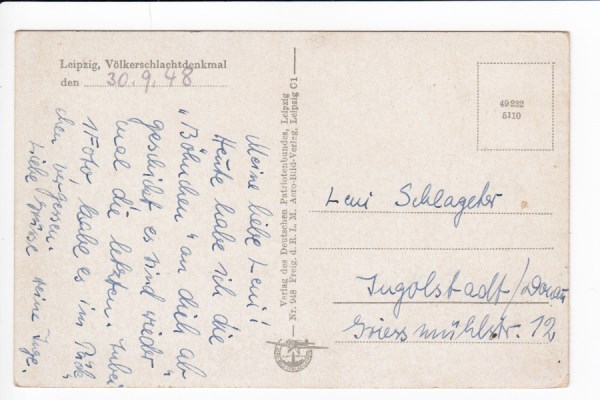 Leipzig, Völkerschlachtdenkmal
den 30.9.48
Meine liebe Leni!
Heute habe ich die
"Böhnchen" an dich ab
geschickt es sind wieder
mal die letzten. Anbei
1 Foto habe es im Päck
chen vergessen.
Liebe Grüsse Deine Inge.
Verlag des Deutschen Patriotenbundes, Leipzig
Nr. 948 Freig. d. R. L. M. Aero-Bild-Verlag, Leipzig C1
49232
5110
Leni Schlageter
Ingolstadt/Donau
Griesmühlstr. 12